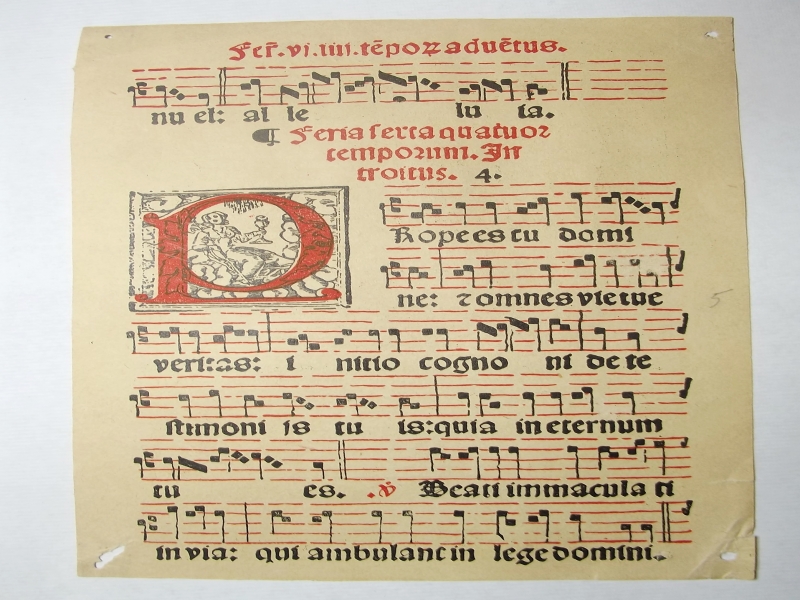 Fer̄.vj.iiii.tēpoꝝ aduētus.
nu el: al le lu ia.
¶ Feria ſexta quatuoꝛ
tempoꝛum. In
troitus. 4.
P Rope es tu domi
ne: ⁊ omnes vie tue
veri:as: i nitio cogno ni de te
ſtimoni is tu is:quia in eternum
tu es. .℣ Beati immacula ti
in via: qui ambulant in lege domini.
5